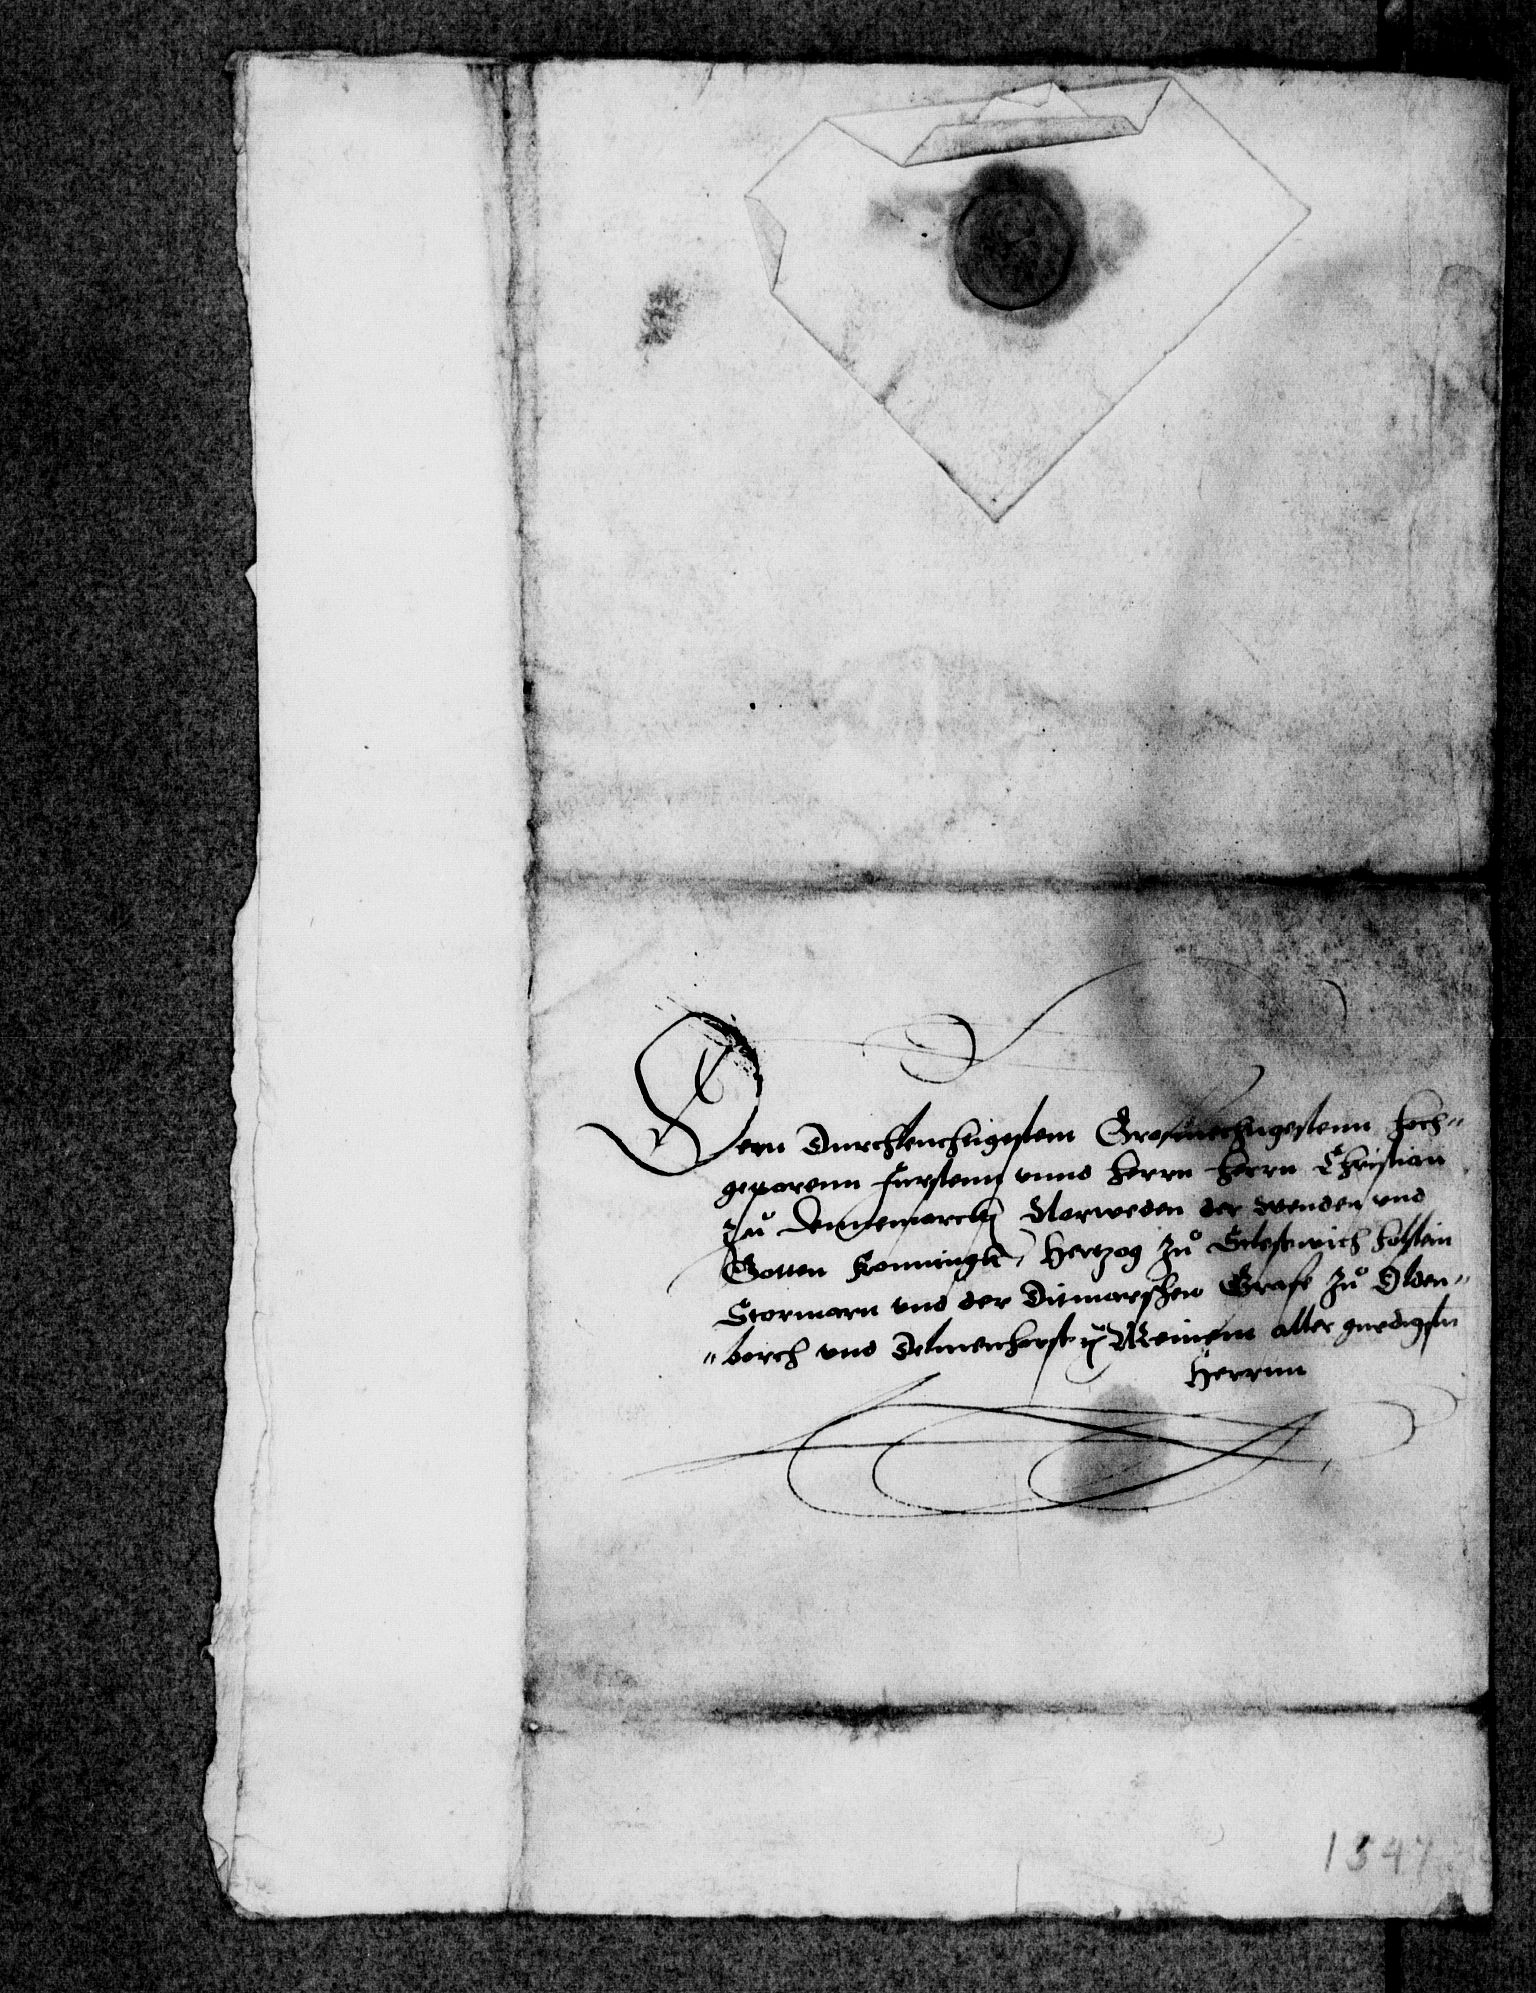 Dem Durchleuchtigestem Grosmechtigestenn Hoch-
geparenn Furstenn unnd Herrn Herrn Christian
zu Dennemarck Norweden der Wenden und
Gotten Konningk, Hertzog zu Sclesswich Holstein
Stormarn und der Ditmarschen Grafe zu Olden-
borch und Delmenhorst Meinem aller gnedigstn
Herrnn
1547